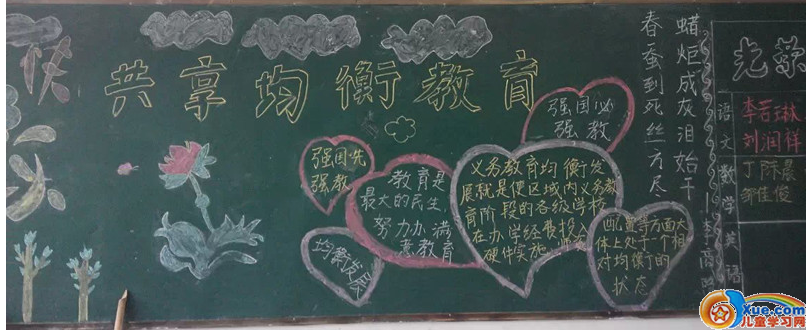 共享均衡教育
强国先
强教
教育是
最大的民生
努力办 满
意教育
均衡发展
强国必
强教
义务教育均衡发
展就是使区域内义务教
育阶段的各级学校
在办学经费投入
硬件实施 师资
置等方面大
体上处于一个相
对均衡的
状态
春蚕到死丝方尽
蜡炬成灰泪始干
李商
光荣
语文
李若琳
刘润祥
数学
丁陈晨
邹佳俊
英语
Xue.com
儿童学习网